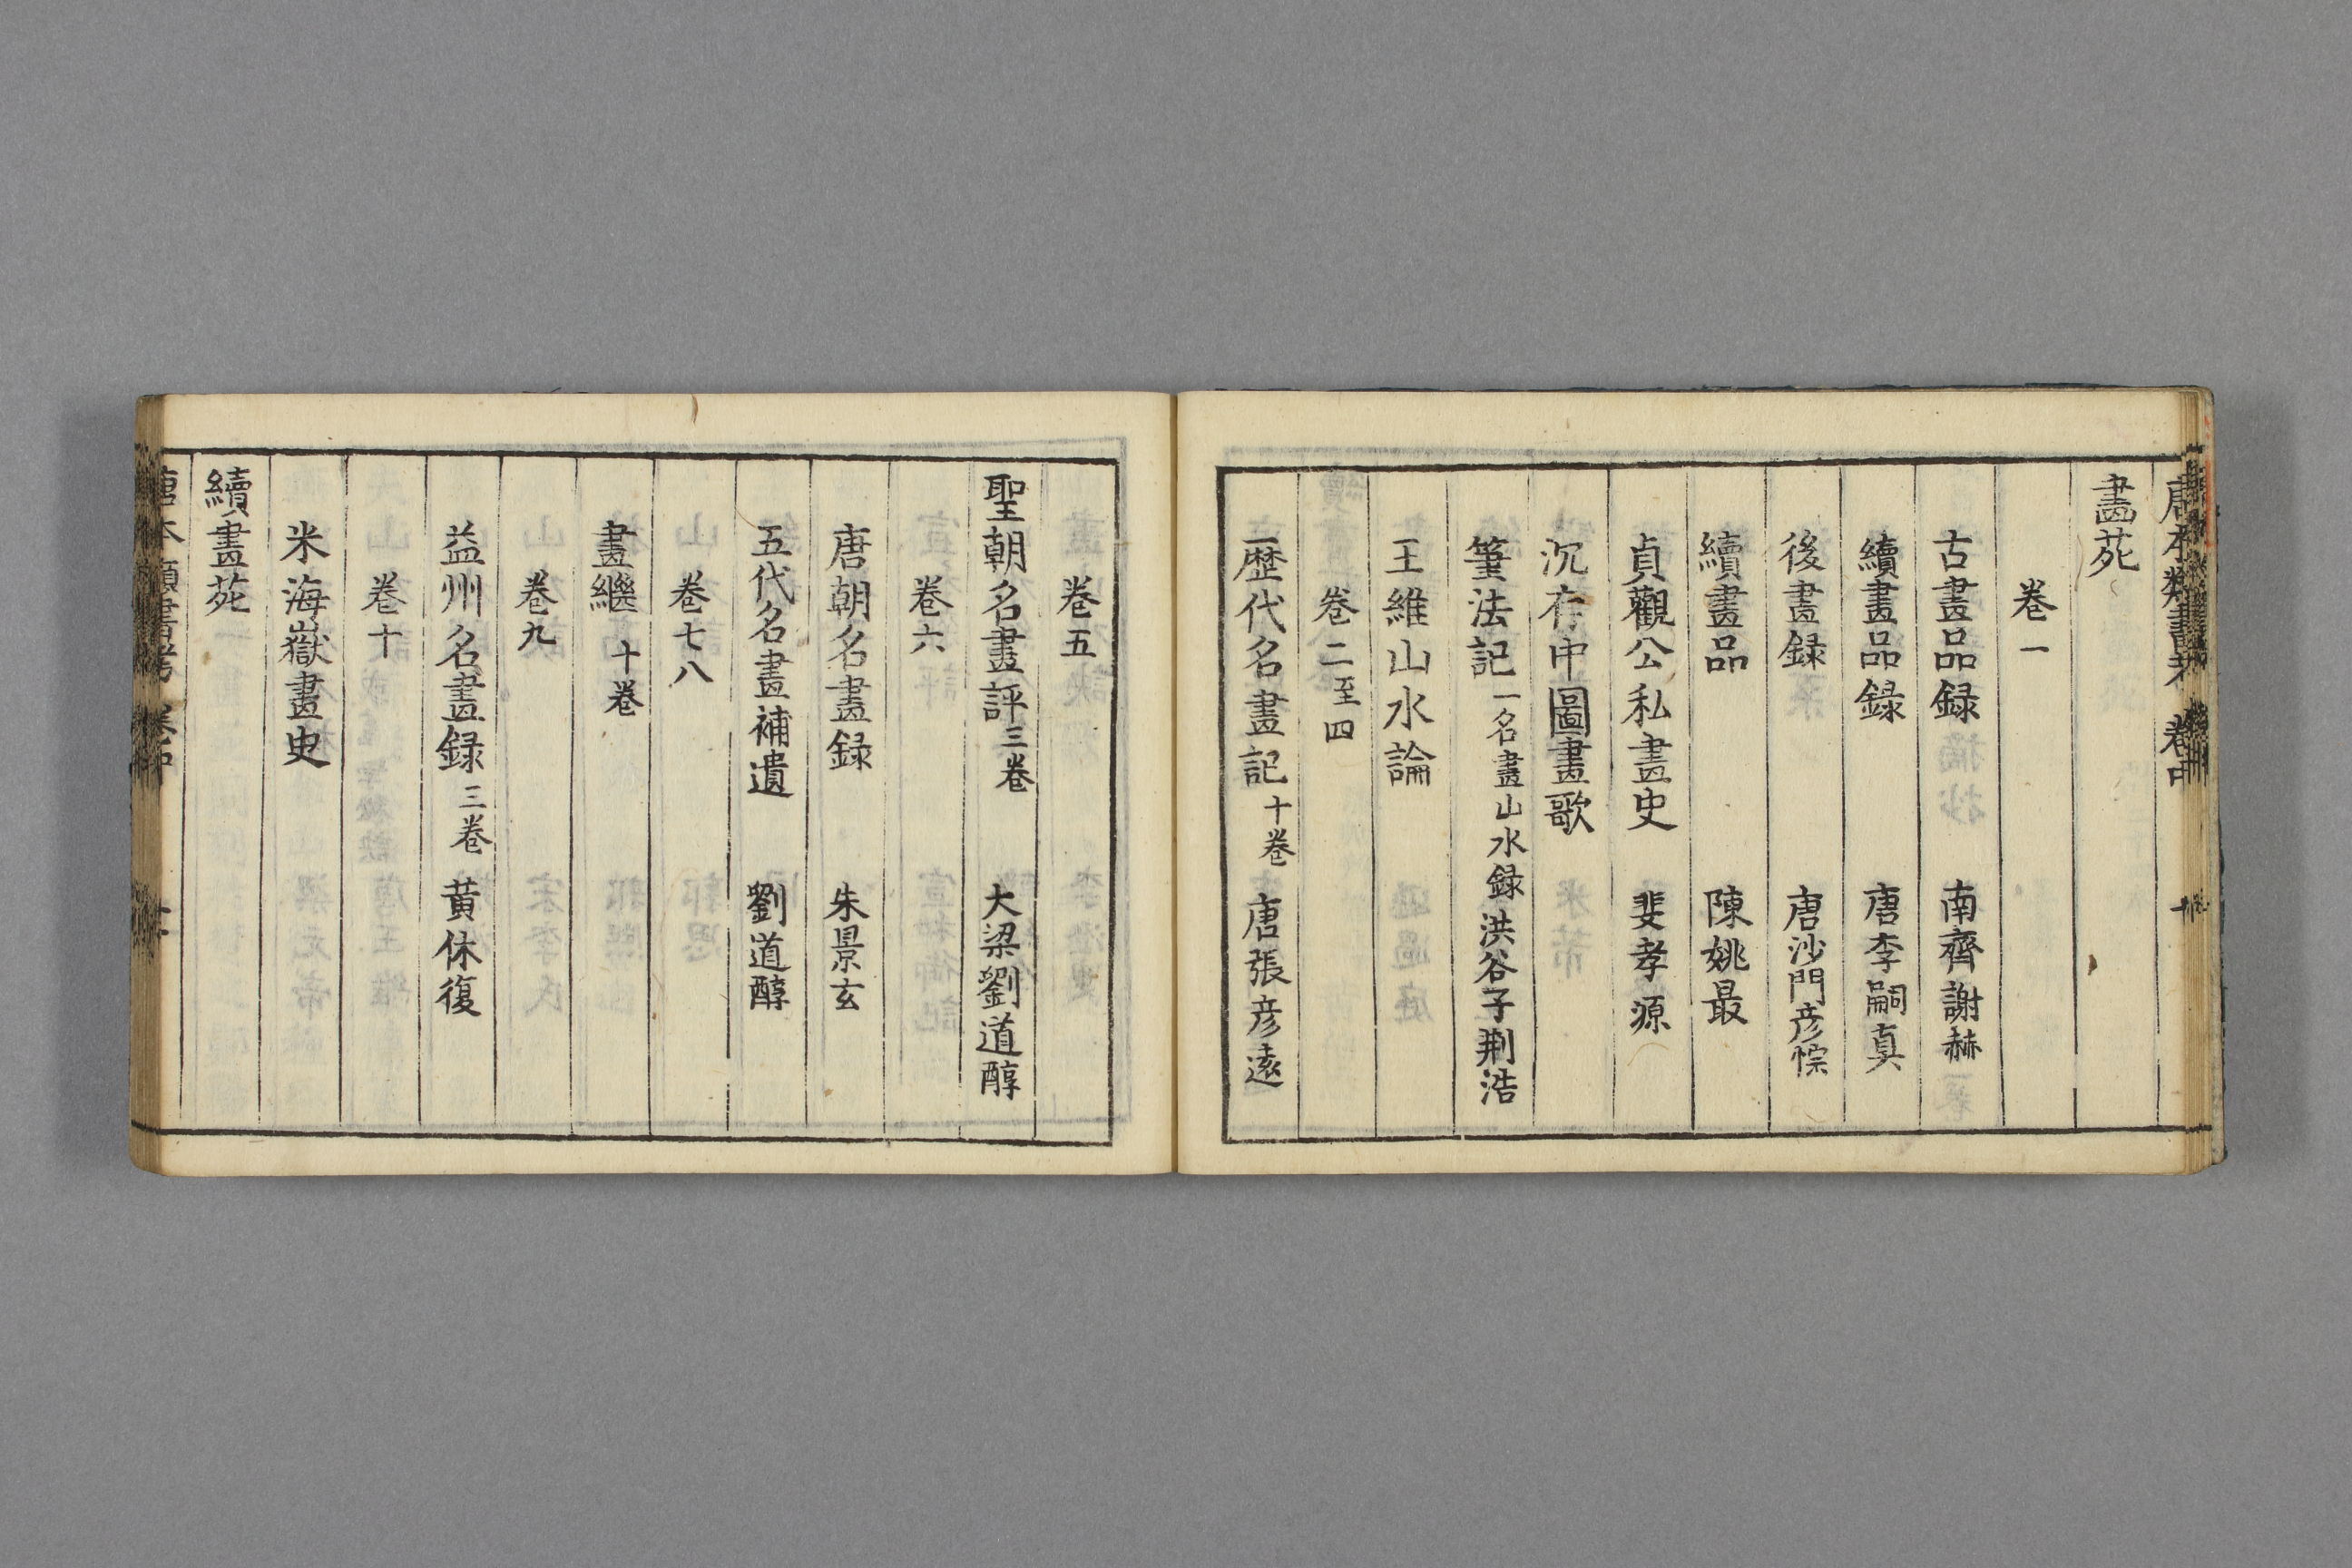 畫苑
卷一
古畫品録 南齊謝赫
續畫品録 唐李嗣真
後畫録 唐沙門彦悰
續畫品 陳姚最
貞觀公私畫史 裴孝源
沉存中圖畫歌
筆法記 一名畫山水録 洪谷子荆浩
王維山水論
卷二至四
歴代名畫記 十卷 唐張彦遠
卷五
聖朝名畫評 三卷 大梁劉道醇
卷六
唐朝名畫録 朱景玄
五代名畫補遺 劉道醇
卷七八
畫繼 十卷
卷九
益州名畫録 三卷 黄休復
卷十
米海嶽畫史
續畫苑